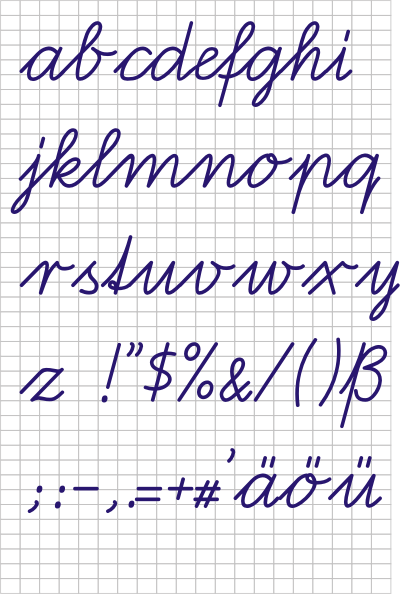 abcdefghi
jklmnopq
rstuvwxy
z!"$%&/()ß
;:-,.=+#'äöü